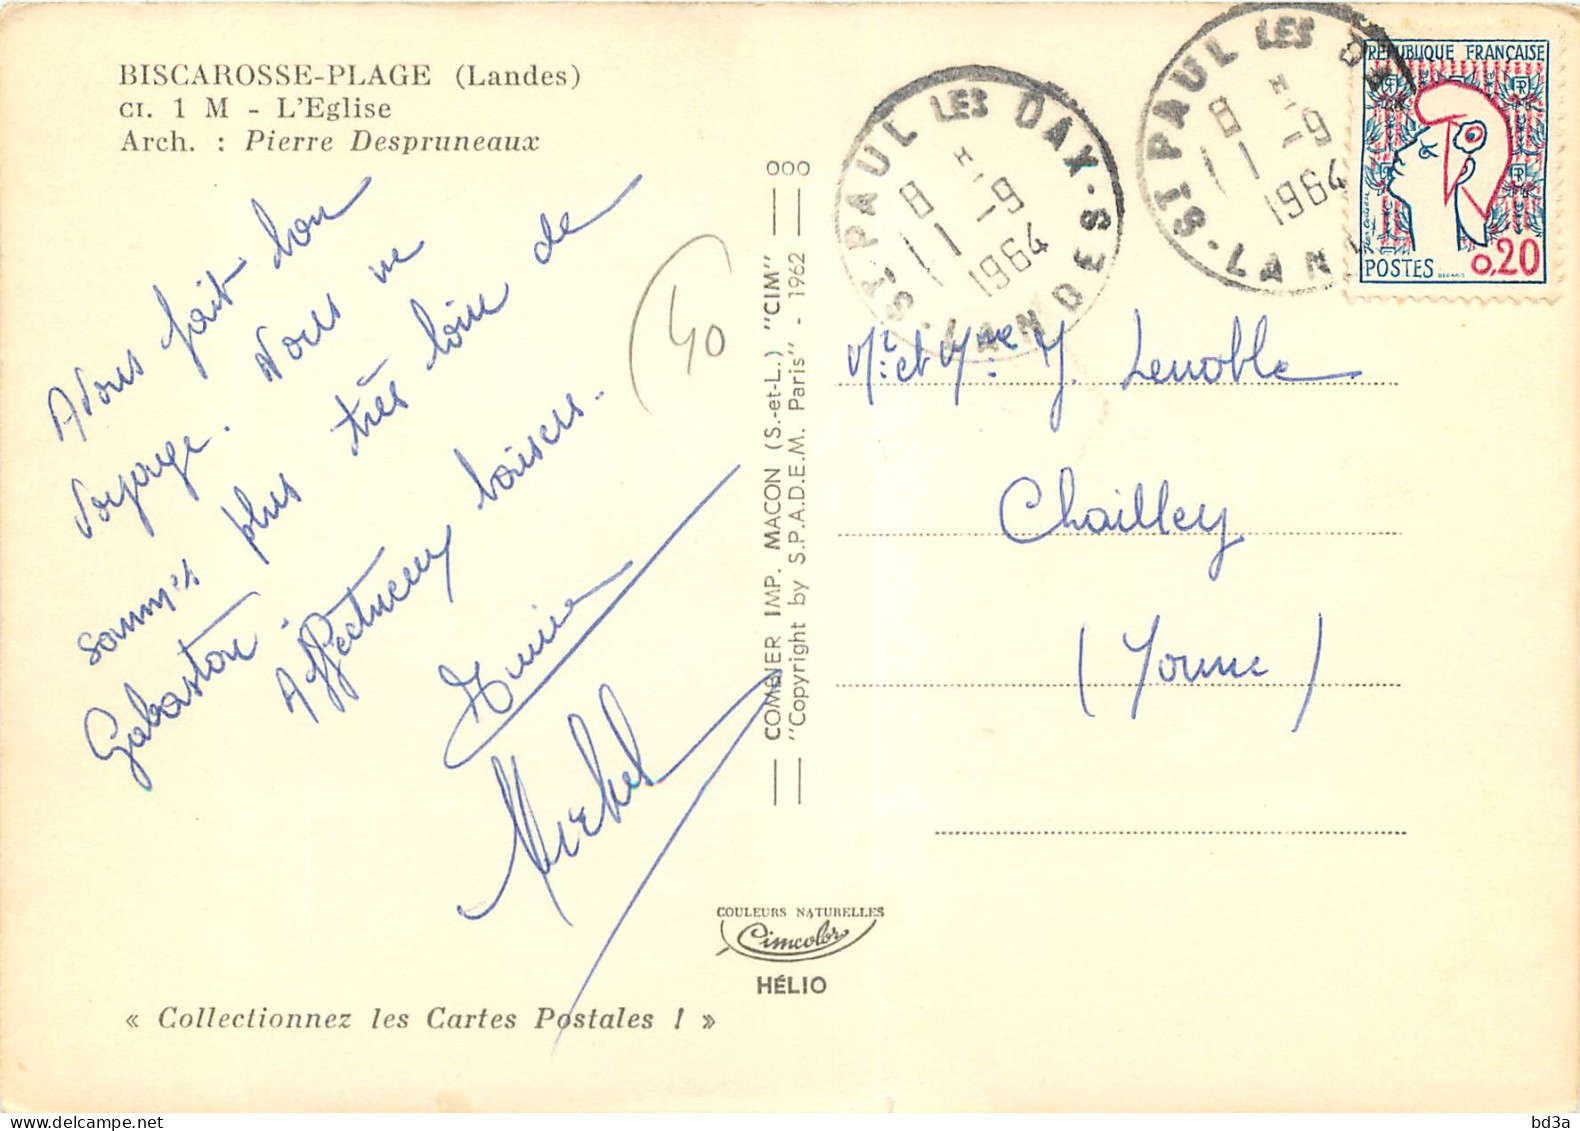 BISCAROSSE-PLAGE (Landes)
CI. 1 M - L'Eglise
Arch. : Pierre Despruneaux
Avons fait bon
voyage. Nous ne
sommes plus très loin de
Gabaston.
Affectueux baisers..
Michel
40
« Collectionnez les Cartes Postales ! »
COMBIER IMP. MACON (S.-et-L.) "CIM"
"Copyright by S.P.A.D.E.M. Paris" - 1962
COULEURS NATURELLES
Cimcolor
HÉLIO
ST PAUL LES DAX · LANDES
8 H
11 - 9
1964
ST PAUL LES DA
LAN
8 H
11 - 9
1964
RÉPUBLIQUE FRANÇAISE
RF
POSTES 0,20
Mr. et Mme. Y. Lenoble
Chailley
(Yonne)